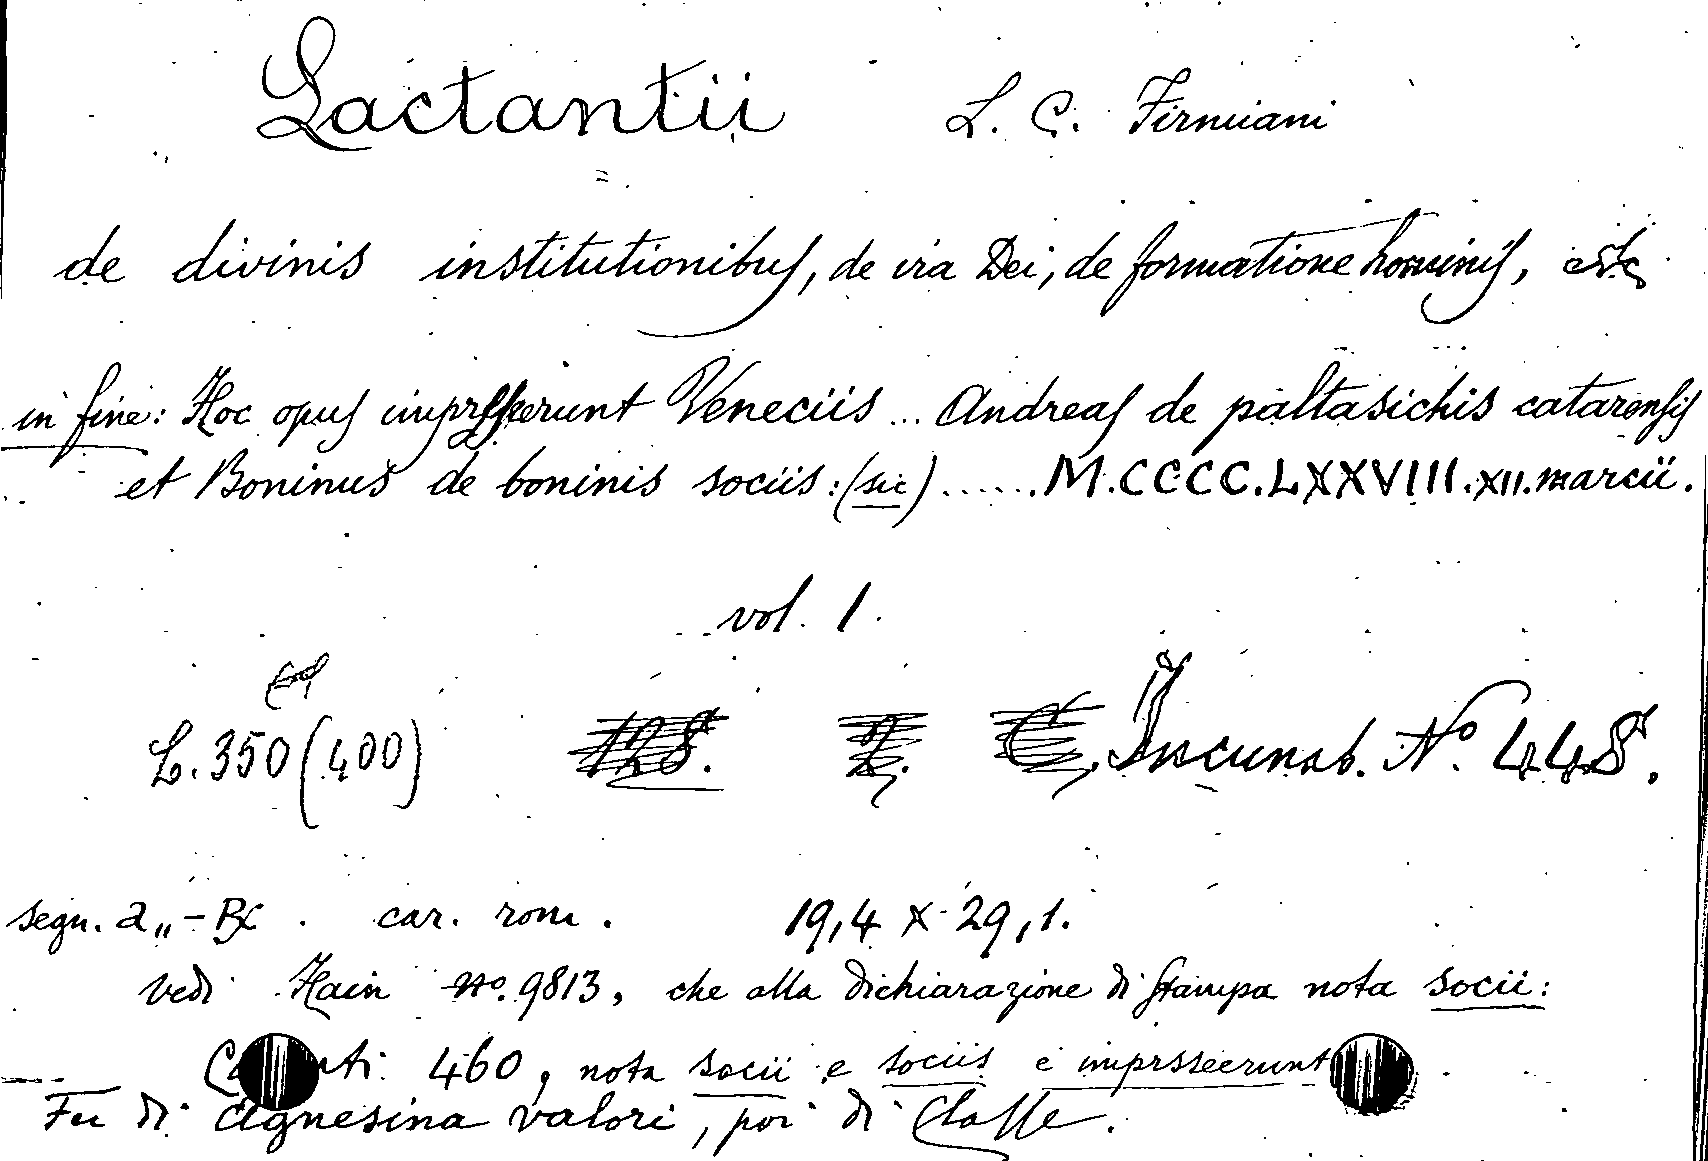 Lactantii L. C. Firmiani
de divinis institutionibus, de ira Dei, de formatione hominis, etc
in fine: Hoc opus imprsserunt Veneciis ... Andreas de paltasichis catarensis
et Boninus de boninis sociis: (sic) ...... M.CCCC.LXXVIII.XII. marcii.
vol. 1.
L. 350 (400) 128. 2. C. Incunab. No. 448.
segn. a,, - . car. rom. 19,4 X 29,1.
vedi Hain no. 9813, che alla dichiarazione di stampa nota socii:
460, nota socii e sociis e imprsseerunt
Fu di Agnesina valori, poi di Classe.